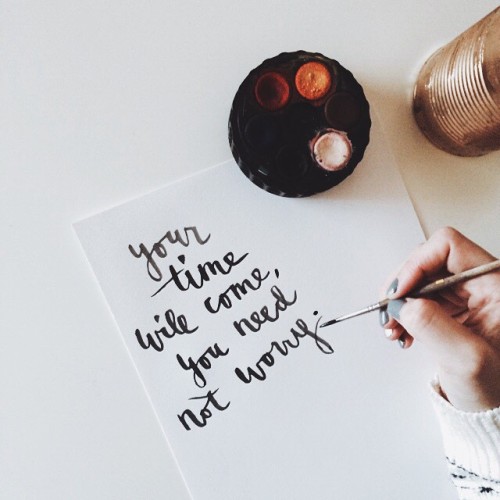 your
time
will come,
you need
not worry.